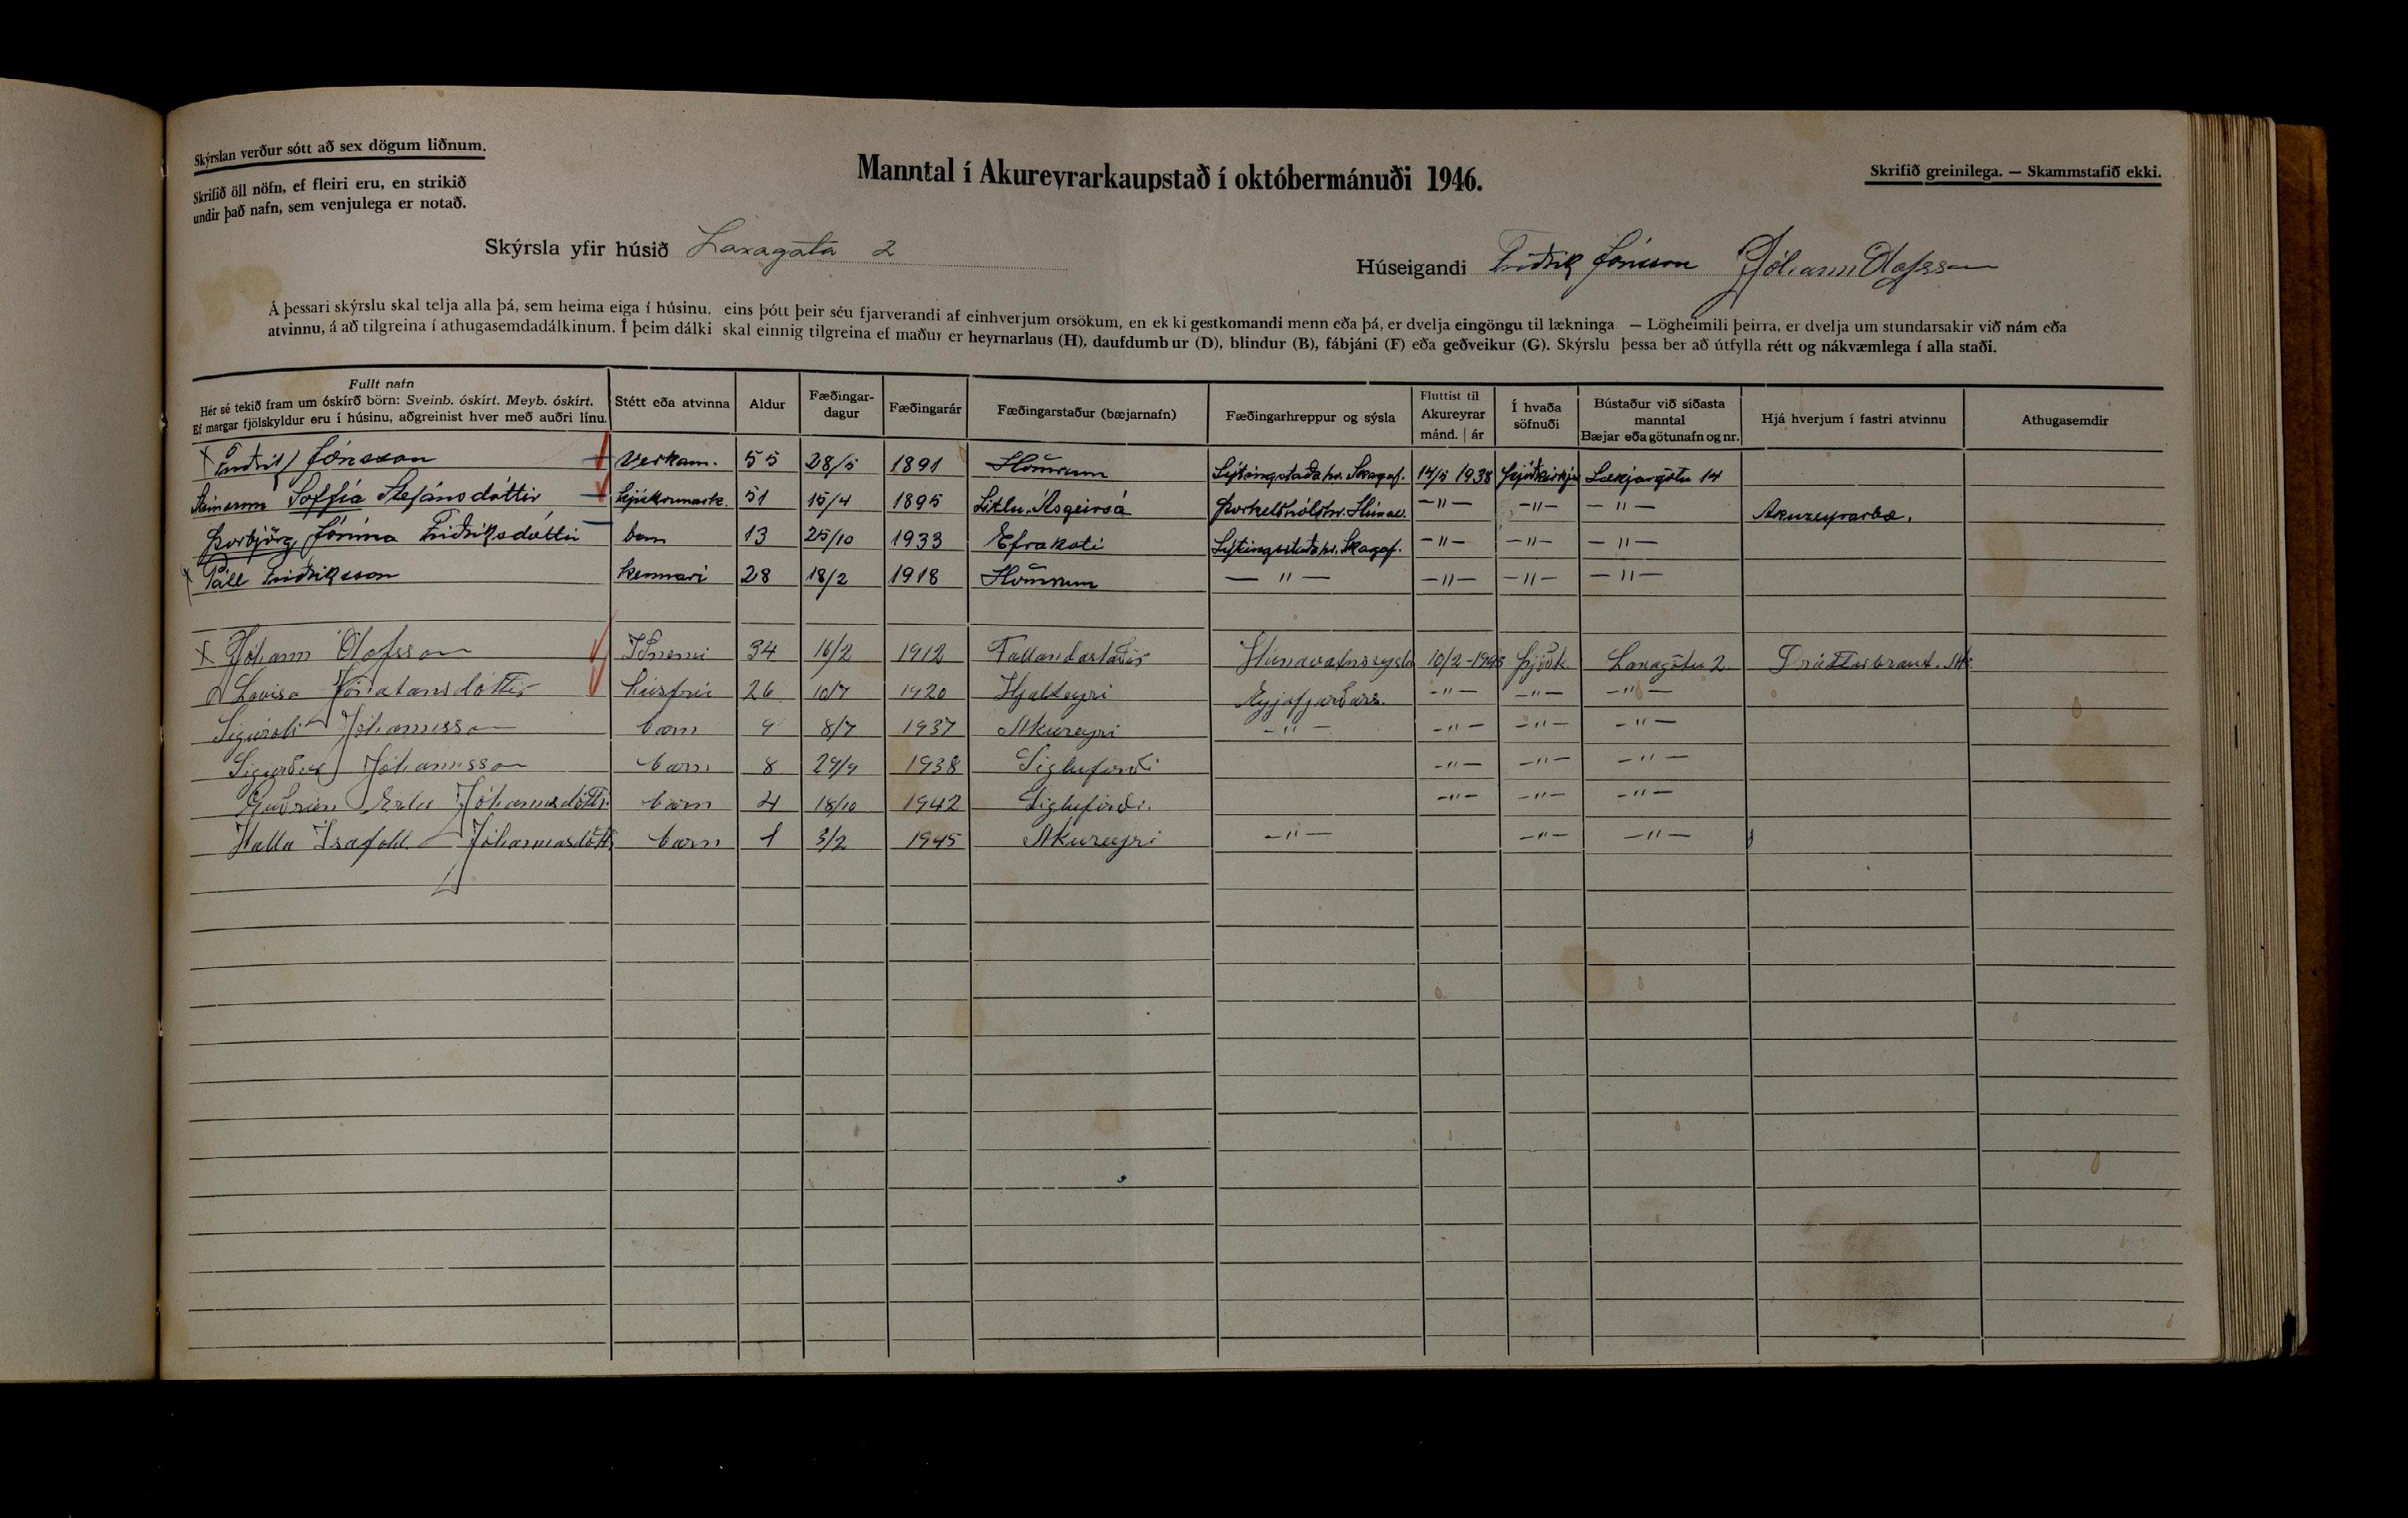 Skýrslan verður sótt að sex dögum liðnum.
Skrifið öll nöfn, ef fleiri eru, en strikið
undir það nafn, sem venjulega er notað.
Manntal í Akureyrarkaupstað í októbermánuði 1946.
Skrifið greinilega. — Skammstafið ekki.
Skýrsla yfir húsið Laxagata 2
Húseigandi Friðrik Jónsson Jóhann Olafsson
Á þessari skýrslu skal telja alla þá, sem heima eiga í húsinu, eins þótt þeir séu fjarverandi af einhverjum orsökum, en ekki gestkomandi menn eða þá, er dvelja eingöngu til lækninga — Lögheimili þeirra, er dvelja um stundarsakir við nám eða
atvinnu, á að tilgreina í athugasemdadálkinum. Í þeim dálki skal einnig tilgreina ef maður er heyrnarlaus (H), daufdumbur (D), blindur (B), fábjáni (F) eða geðveikur (G). Skýrslu þessa ber að útfylla rétt og nákvæmlega í alla staði.
Fullt nafn
Hér sé tekið fram um óskírð börn: Sveinb. óskírt. Meyb. óskírt.
Ef margar fjölskyldur eru í húsinu, aðgreinist hver með auðri línu.
Stétt eða atvinna
Aldur
Fæðingar-
dagur
Fæðingarár
Fæðingarstaður (bæjarnafn)
Fæðingarhreppur og sýsla
Fluttist til
Akureyrar
mánd. | ár
Í hvaða
söfnuði
Bústaður við síðasta
manntal
Bæjar eða götunafn og nr.
Hjá hverjum í fastri atvinnu
Athugasemdir
Friðrik Jónsson Verkam. 55 28/5 1891 Hömrum Lýtingsstaða hr. Skagaf. 14/5 1938 Þjóðkirkju Lækjargötu 14
Steinunn Soffía Stefánsdóttir 51 15/4 1895 Litlu-Ásgeirsá Þorkelshólshr. Húnav. —"— —"— —"— Akureyrarbæ.
Þorbjörg Jónína Friðriksdóttir barn 13 25/10 1933 Efrakoti Lýtingsstaðahr. Skagaf. —"— —"— —"—
Páll Friðriksson kennari 28 18/2 1918 Hömrum —"— —"— —"— —"—
Jóhann Olafsson 34 16/2 1912 Fallandastaðir Húnavatnssýsla 10/2-1945 Þjóðk. Laxagötu 2 Dráttarbraut. Ak.
Lovísa Jónatansdóttir húsfrú 26 10/7 1920 Hjalteyri Eyjafjarðars. —"— —"— —"—
Siguróli Jóhannsson barn 9 8/7 1937 Akureyri —"— —"— —"— —"—
Sigurður Jóhannsson barn 8 29/9 1938 Siglufirði —"— —"— —"—
Guðrún Erla Jóhannsdóttir barn 4 18/10 1942 Siglufirði. —"— —"— —"—
Halla Ísafold Jóhannsdótt. barn 1 3/2 1945 Akureyri —"— —"— —"—